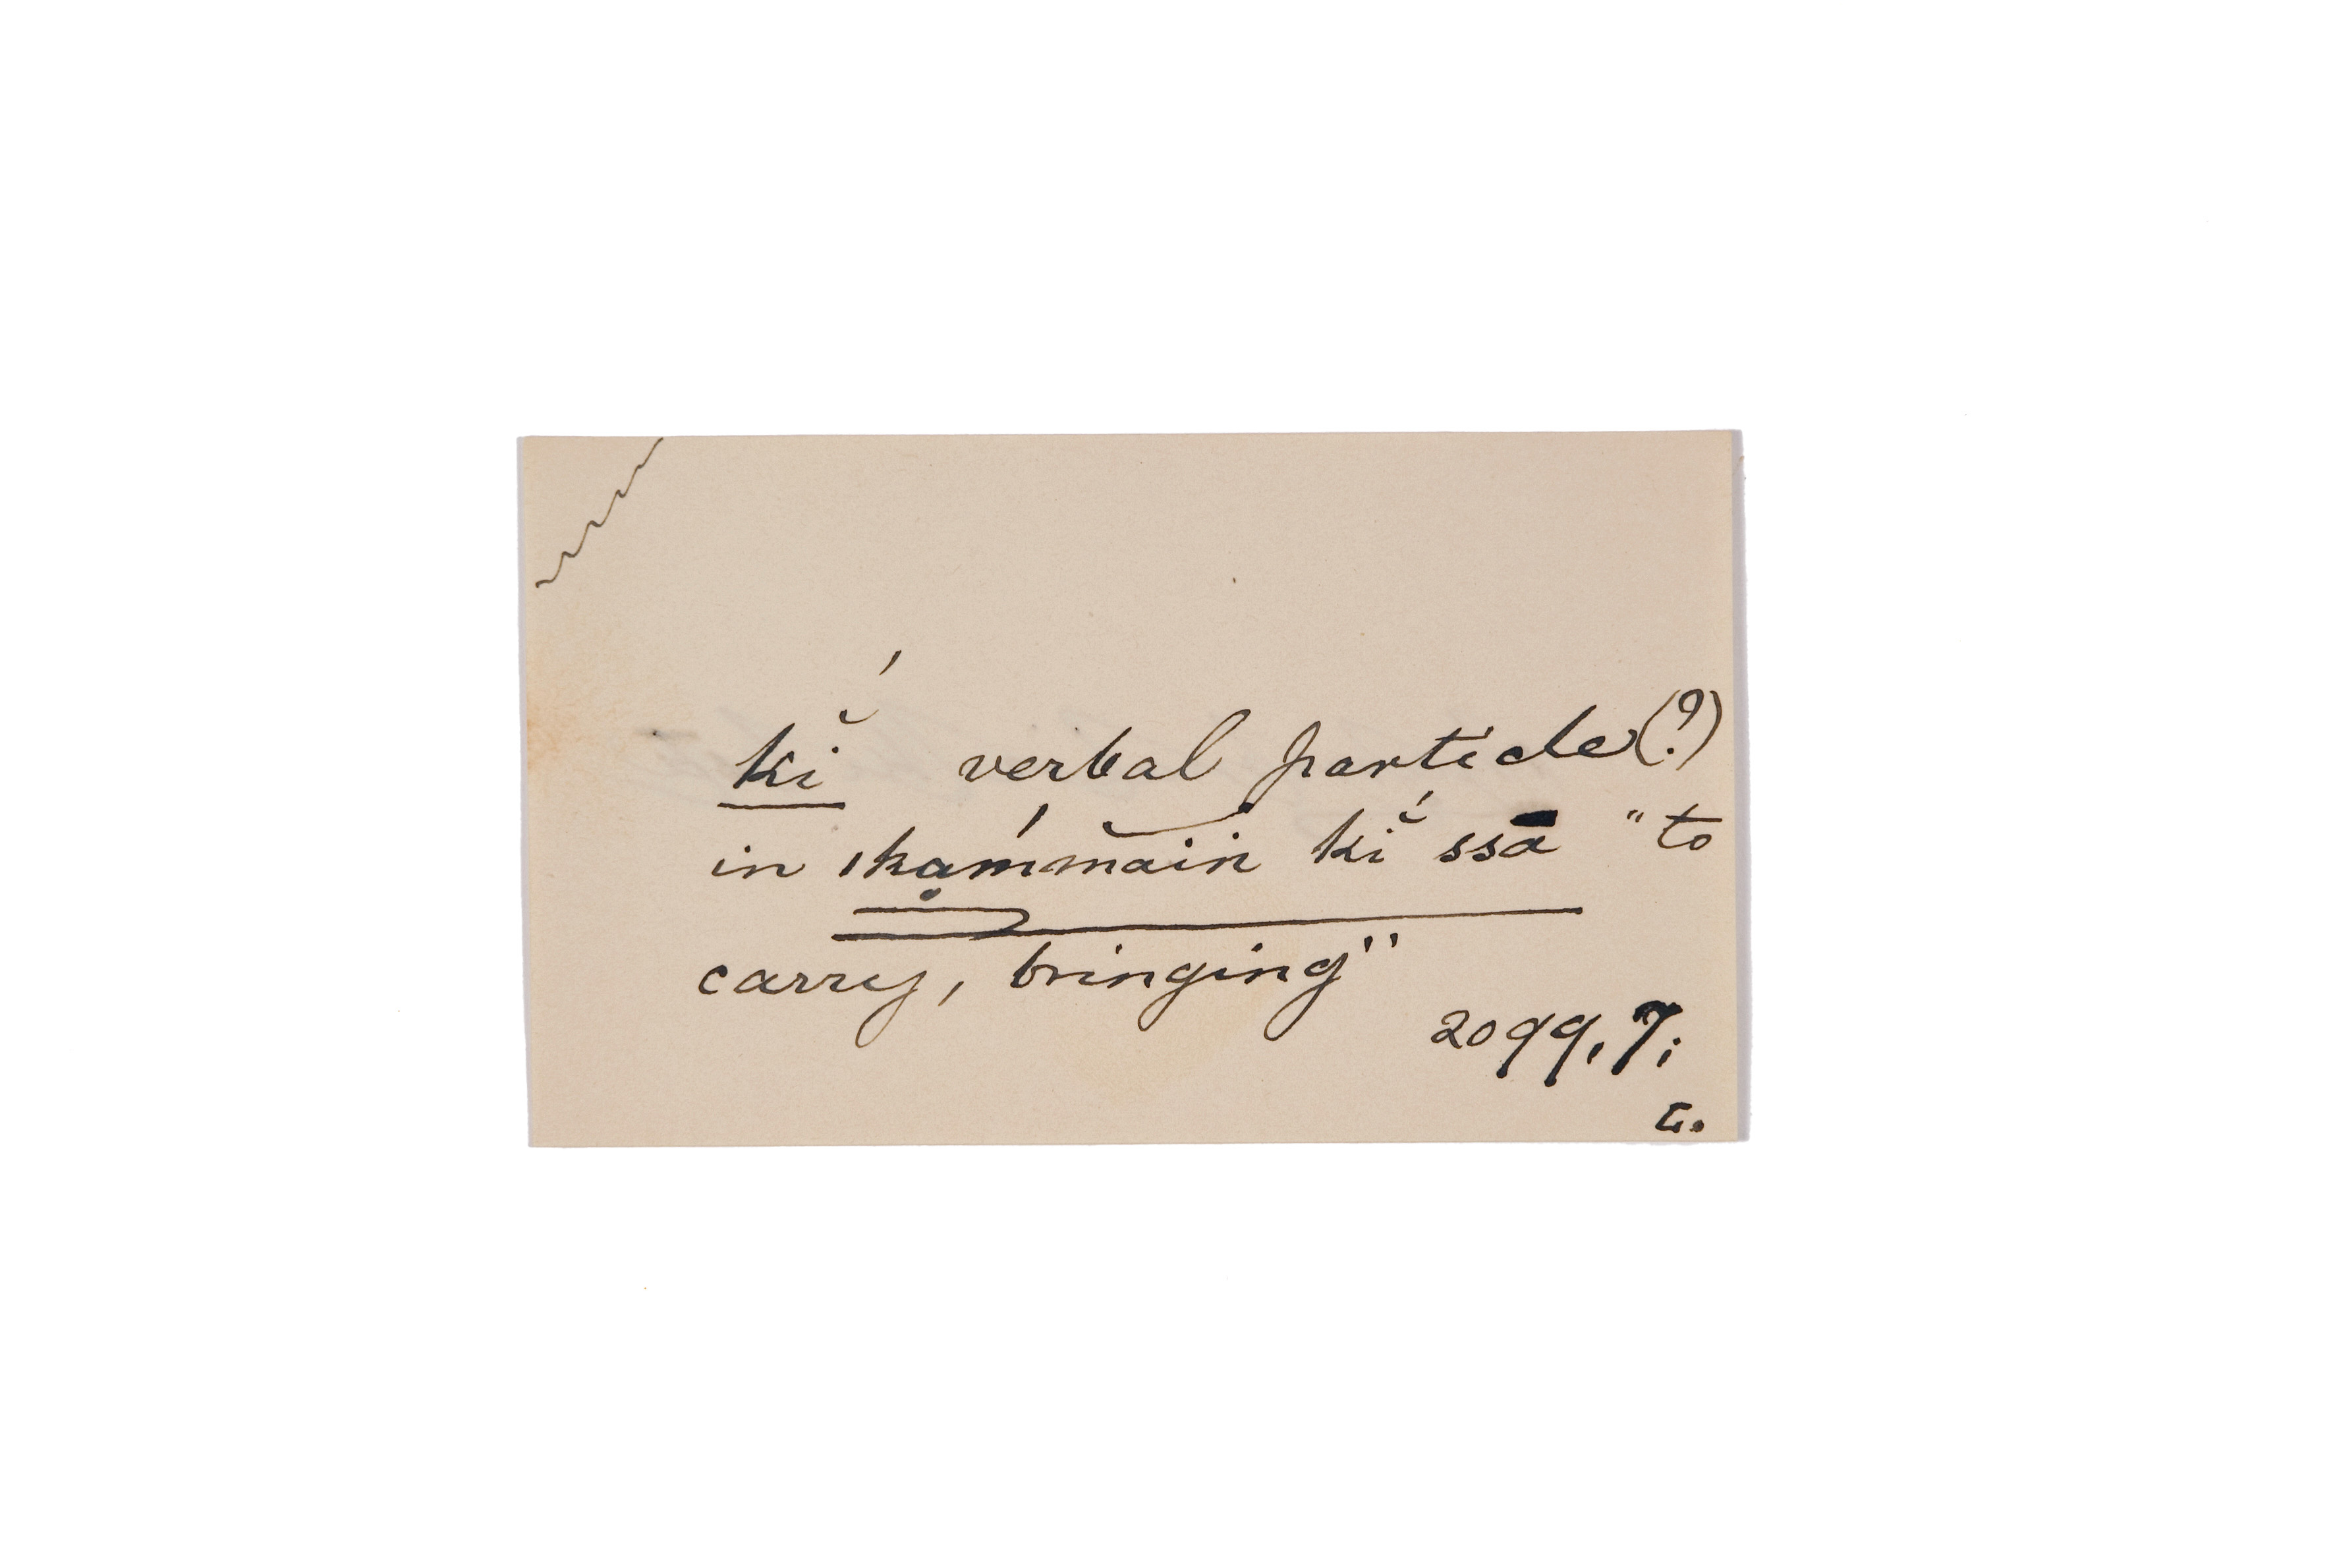 kĭ́ verbal particle (?)
in ıkạmmăin kĭ́ ssā "to
carry, bringing"
2099,7;
G.